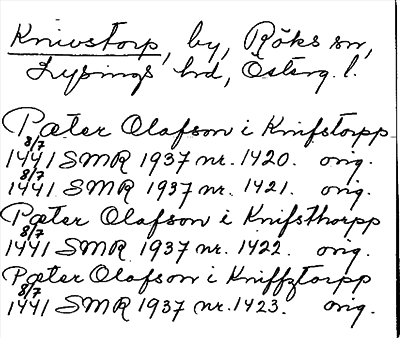 Knivstorp, by, Röks sn,
Lysings hd, Österg. l.
Pæter Olafson i Knifstorpp
8/7 1441 SMR 1937 nr. 1420. orig.
8/7 1441 SMR 1937 nr. 1421. orig.
Pæter Olafson i Knifsthorpp
8/7 1441 SMR 1937 nr. 1422. orig.
Pæter Olafson i Kniffztorpp
8/7 1441 SMR 1937 nr. 1423. orig.